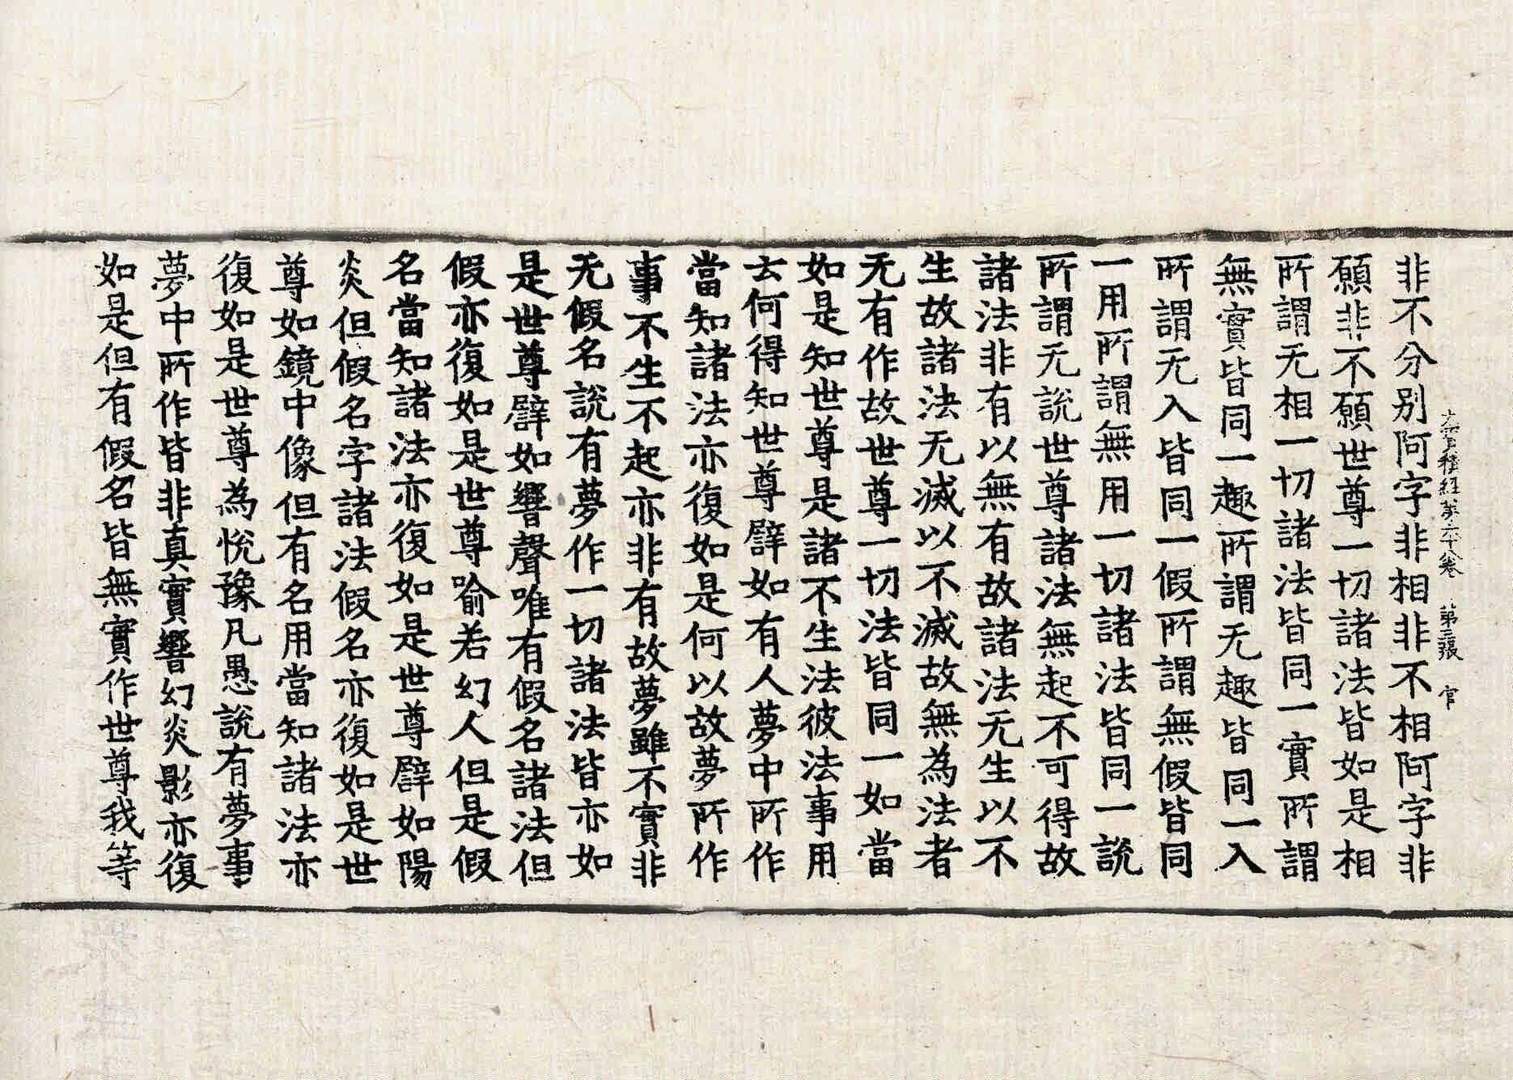 大寶積經第六十卷 第三張 官
非不分别阿字非相非不相阿字非
願非不願世尊一切諸法皆如是相
所謂无相一切諸法皆同一實所謂
無實皆同一趣所謂无趣皆同一入
所謂无入皆同一假所謂無假皆同
一用所謂無用一切諸法皆同一說
所謂无說世尊諸法無起不可得故
諸法非有以無有故諸法无生以不
生故諸法无滅以不滅故無為法者
无有作故世尊一切法皆同一如當
如是知世尊是諸不生法彼法事用
云何得知世尊譬如有人夢中所作
當知諸法亦復如是何以故夢所作
事不生不起亦非有故夢雖不實非
无假名說有夢作一切諸法皆亦如
是世尊譬如響聲唯有假名諸法但
假亦復如是世尊喻若幻人但是假
名當知諸法亦復如是世尊譬如陽
炎但假名字諸法假名亦復如是世
尊如鏡中像但有名用當知諸法亦
復如是世尊為悅豫凡愚說有夢事
夢中所作皆非真實響幻炎影亦復
如是但有假名皆無實作世尊我等